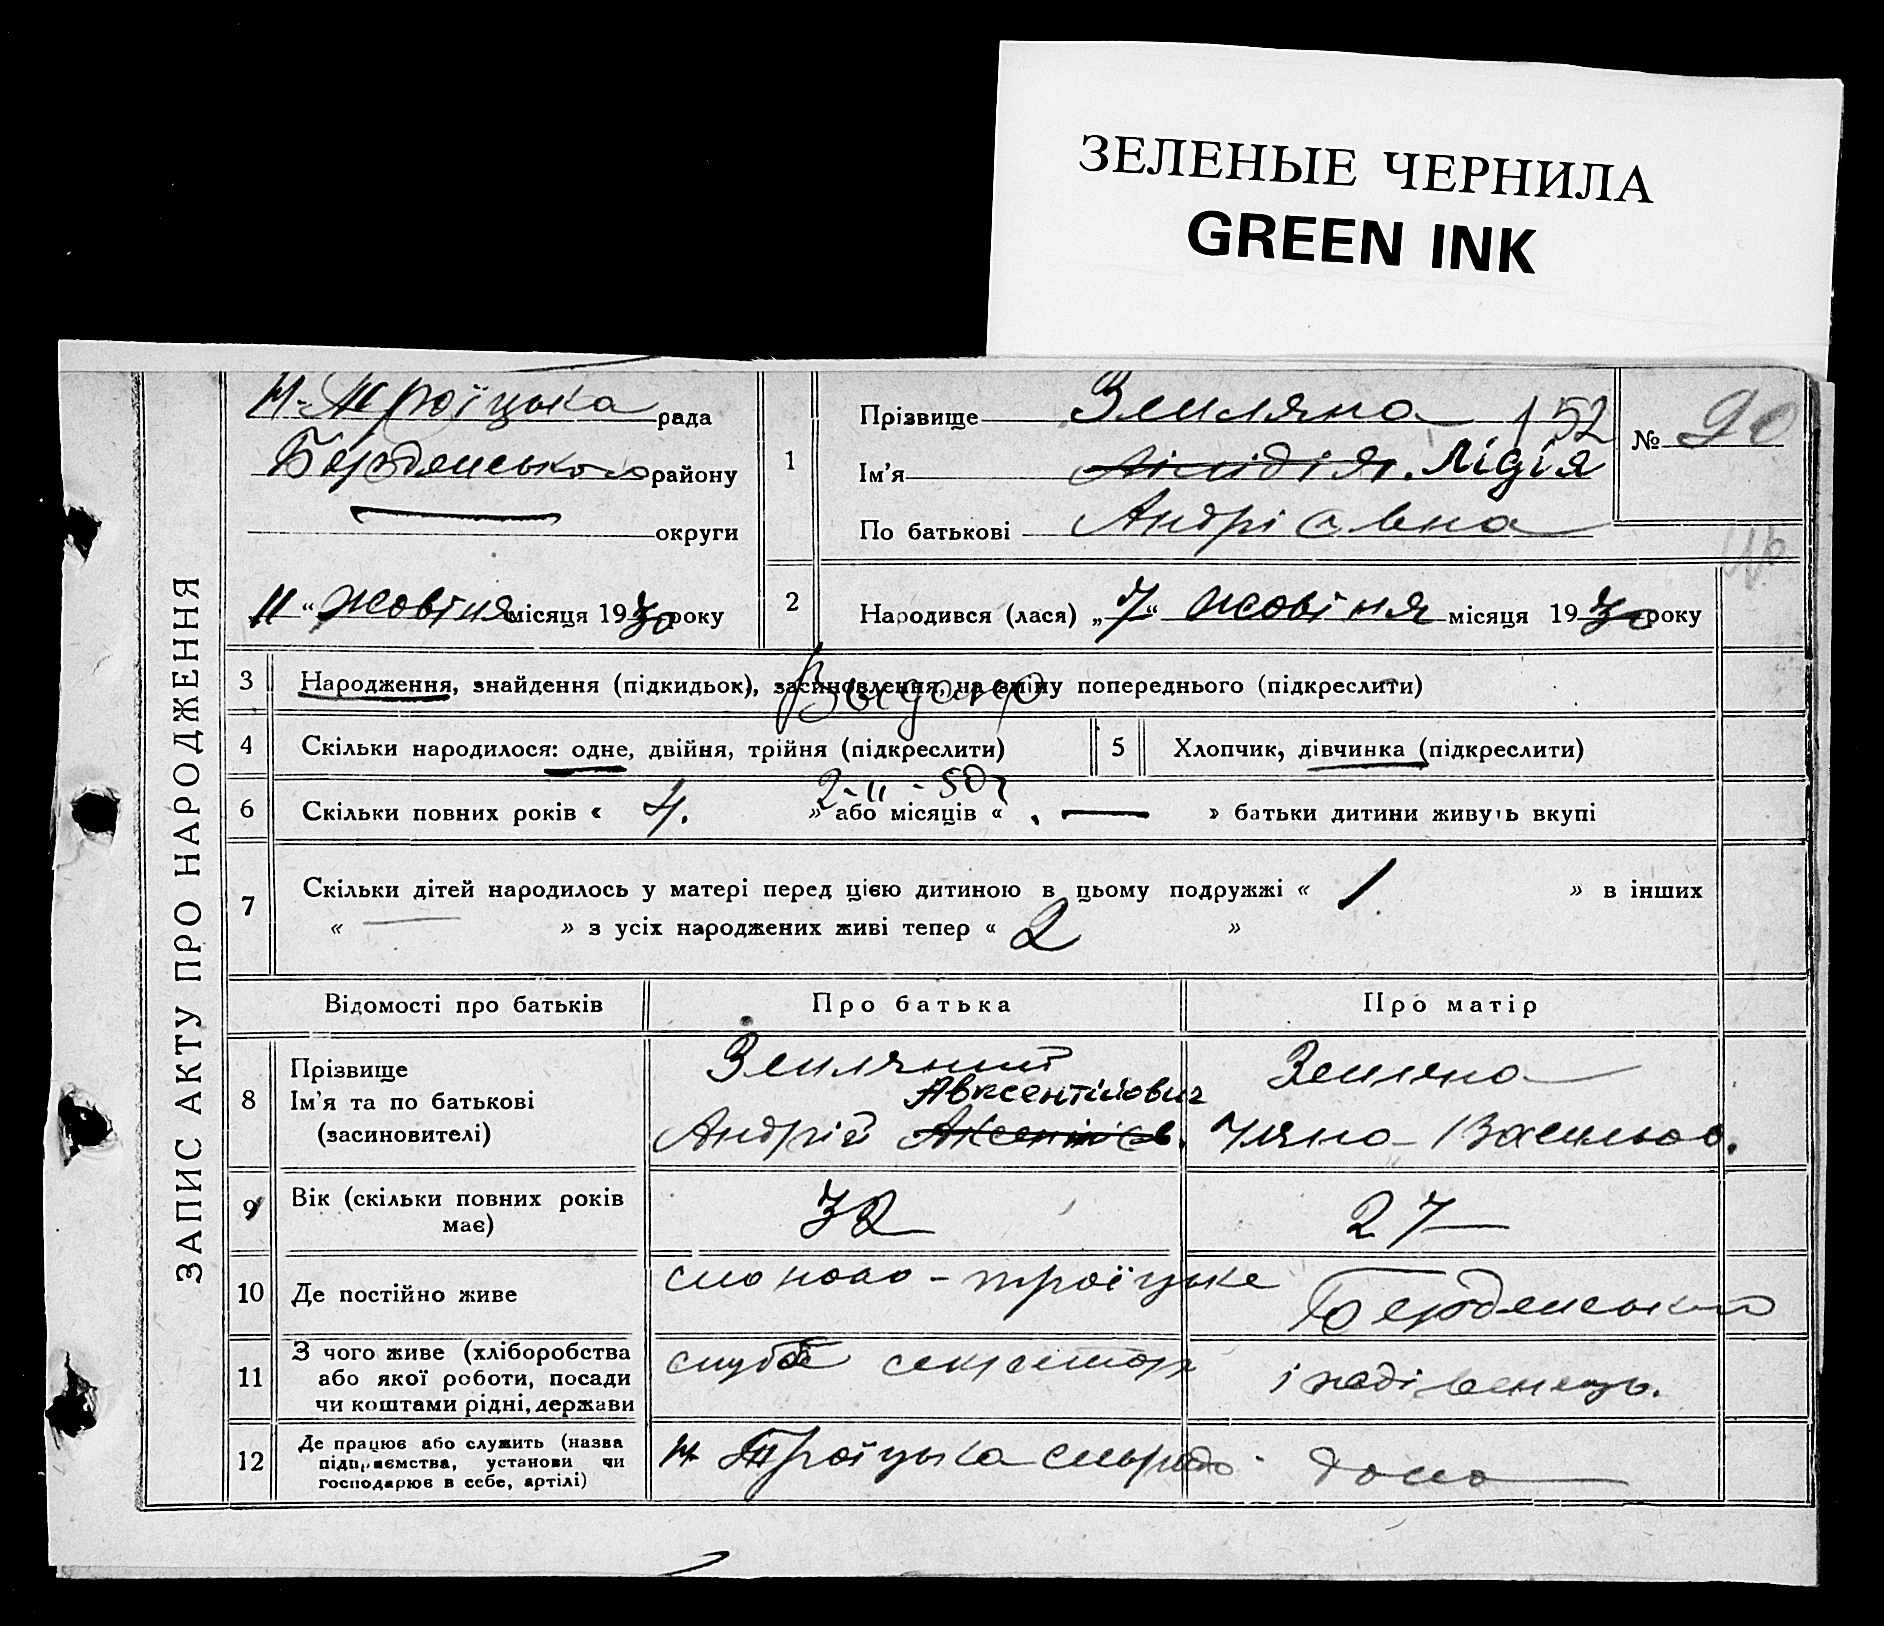 ЗЕЛЕНЫЕ ЧЕРНИЛА
GREEN INK
ЗАПИС АКТУ ПРО НАРОДЖЕННЯ
Н-Троїцька рада
Бердянського району
округи
11 " жовтня місяця 1930 року
1
Прізвище Земляна 152
Ім'я Лідія
По батькові Андрієвна
№ 90
2
Народився (лася) „7" жовтня місяця 1930 року
3
Народження, знайдення (підкидьок), засиновлення, на зміну попереднього (підкреслити)
Выдано
4
Скільки народилося: одне, двійня, трійня (підкреслити)
5
Хлопчик, дівчинка (підкреслити)
2-11-50г
6
Скільки повних років « 4. » або місяців « — » батьки дитини живуть вкупі
7
Скільки дітей народилось у матері перед цією дитиною в цьому подружжі « 1 » в інших
« — » з усіх народжених живі тепер « 2 »
Відомості про батьків
Про батька
Про матір
8
Прізвище
Ім'я та по батькові
(засиновителі)
Земляний
Авксентійович
Андрій Аксентієв.
Земляна
Уляна Васильов.
9
Вік (скільки повних років
має)
32
27
10
Де постійно живе
с ново-троїцьке
Бердянський
11
З чого живе (хліборобства
або якої роботи, посади
чи коштами рідні, держави
служб секретарь
12
Де працює або служить (назва
підприємства, установи чи
господарює в себе, артілі)
Н Троїцька сільрада
дома